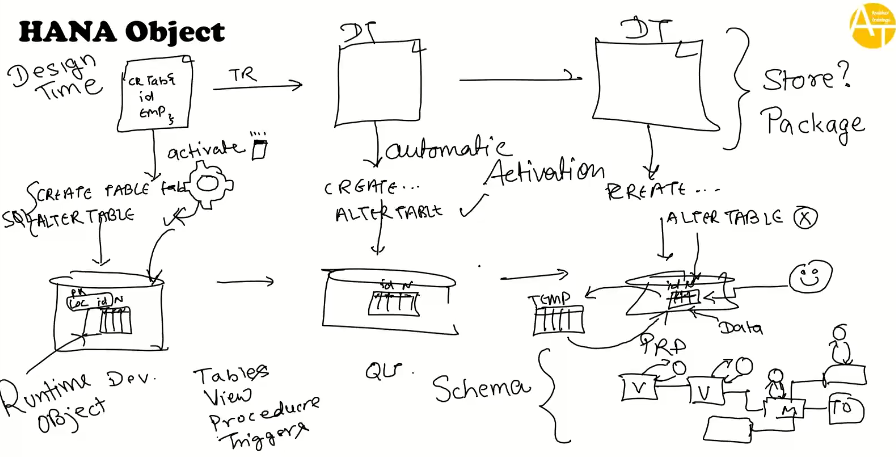 HANA Object
DT
DT
AT
Design
Time
CR Table
id
EMP
TR
Store?
Package
activate
automatic
Activation
SQL
CREATE TABLE
ALTER TABLE
CREATE...
ALTER TABLE
CREATE...
ALTER TABLE
PK
loc id N
id N
id N
TEMP
Data
Runtime
Object
Dev.
Tables
View
Procedure
Triggers
Schema
PRD
V
V
M
TO